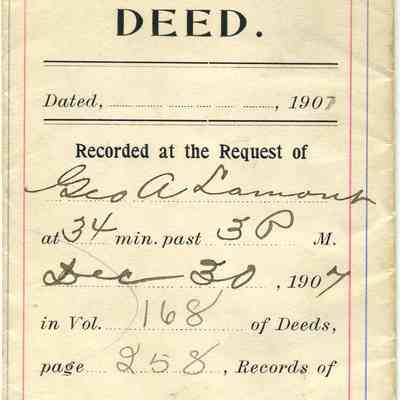 DEED.
Dated, ............ , 1907
Recorded at the Request of
Geo A Lamont
at 34 min. past 3 P M.
Dec 30 , 1907
in Vol. 168 of Deeds,
page 258 , Records of